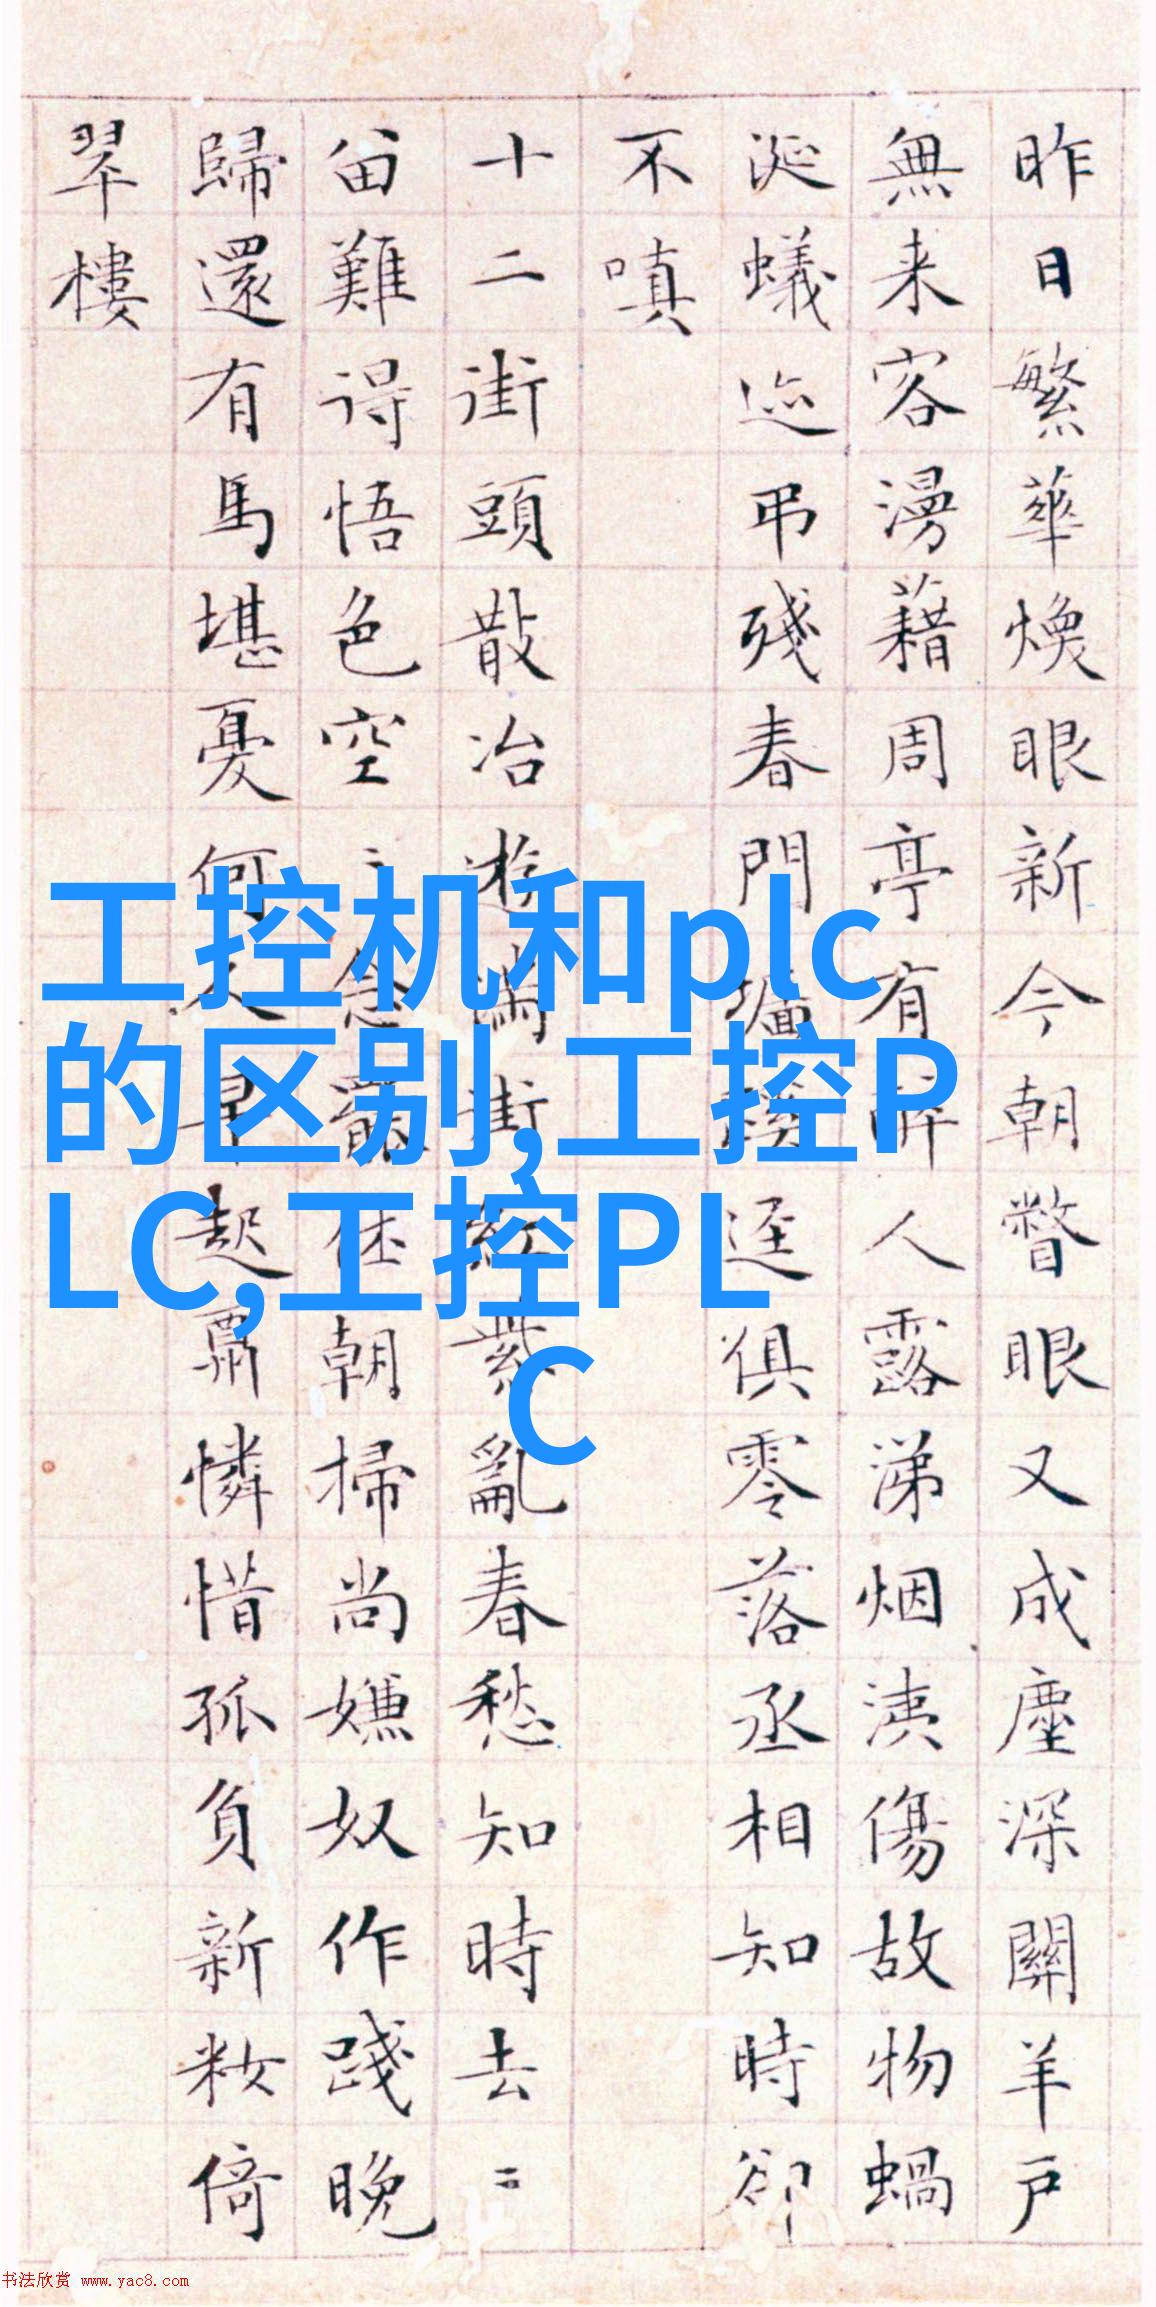 昨日繁華煥眼新今朝瞥眼又成塵深關羊戶
無来客漫藉周亭有醉人露涕烟洟傷故物蝸
涎蟻迹弔殘春門墻蹊逕俱零落丞相知時卻
不嗔
十二街頭散冶遊滿街紅紫亂春愁知時去二
留難得悟色空念罷朝掃尚嫌奴作踐晚
歸還有馬堪憂何人早起肅憐惜孤負新妝倚
翠樓
工控机和plc
的区别,工控P
LC,工控PL
C
书法欣赏 www.yac8.com